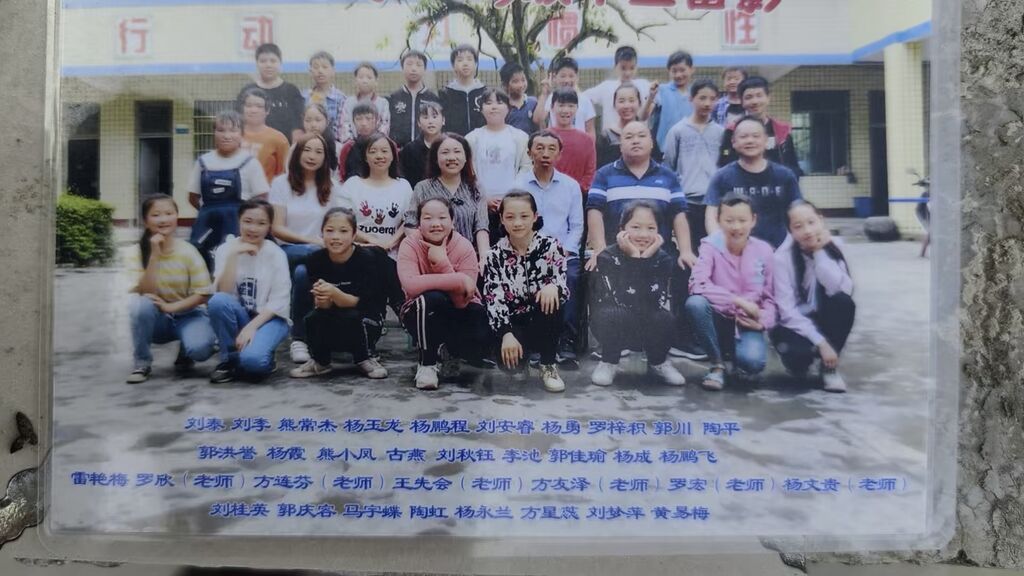 行 动 惯 性
zuoerq
刘泰 刘李 熊常杰 杨玉龙 杨鹏程 刘安睿 杨勇 罗梓积 郭川 陶平
郭洪誉 杨霞 熊小凤 古燕 刘秋钰 李池 郭佳瑜 杨成 杨鹏飞
雷艳梅 罗欣（老师）方连芬（老师）王先会（老师）方友泽（老师）罗宏（老师）杨文贵（老师）
刘桂英 郭庆容 马宇蝶 陶虹 杨永兰 方星蕊 刘梦萍 黄易梅